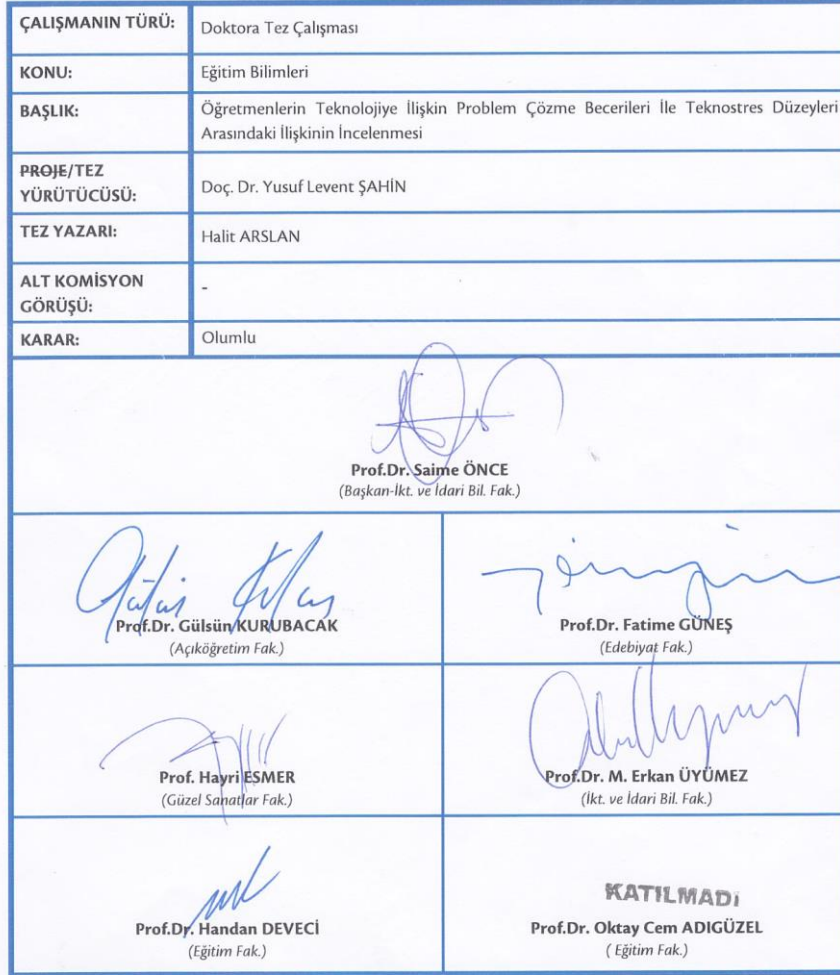 ÇALIŞMANIN TÜRÜ:
Doktora Tez Çalışması
KONU:
Eğitim Bilimleri
BAŞLIK:
Öğretmenlerin Teknolojiye İlişkin Problem Çözme Becerileri İle Teknostres Düzeyleri
Arasındaki İlişkinin İncelenmesi
PROJE/TEZ
YÜRÜTÜCÜSÜ:
Doç. Dr. Yusuf Levent ŞAHİN
TEZ YAZARI:
Halit ARSLAN
ALT KOMİSYON
GÖRÜŞÜ:
-
KARAR:
Olumlu
Prof.Dr. Saime ÖNCE
(Başkan-İkt. ve İdari Bil. Fak.)
Prof.Dr. Gülsün KURUBACAK
(Açıköğretim Fak.)
Prof.Dr. Fatime GÜNEŞ
(Edebiyat Fak.)
Prof. Hayri ESMER
(Güzel Sanatlar Fak.)
Prof.Dr. M. Erkan ÜYÜMEZ
(İkt. ve İdari Bil. Fak.)
Prof.Dr. Handan DEVECİ
(Eğitim Fak.)
KATILMADI
Prof.Dr. Oktay Cem ADIGÜZEL
( Eğitim Fak.)